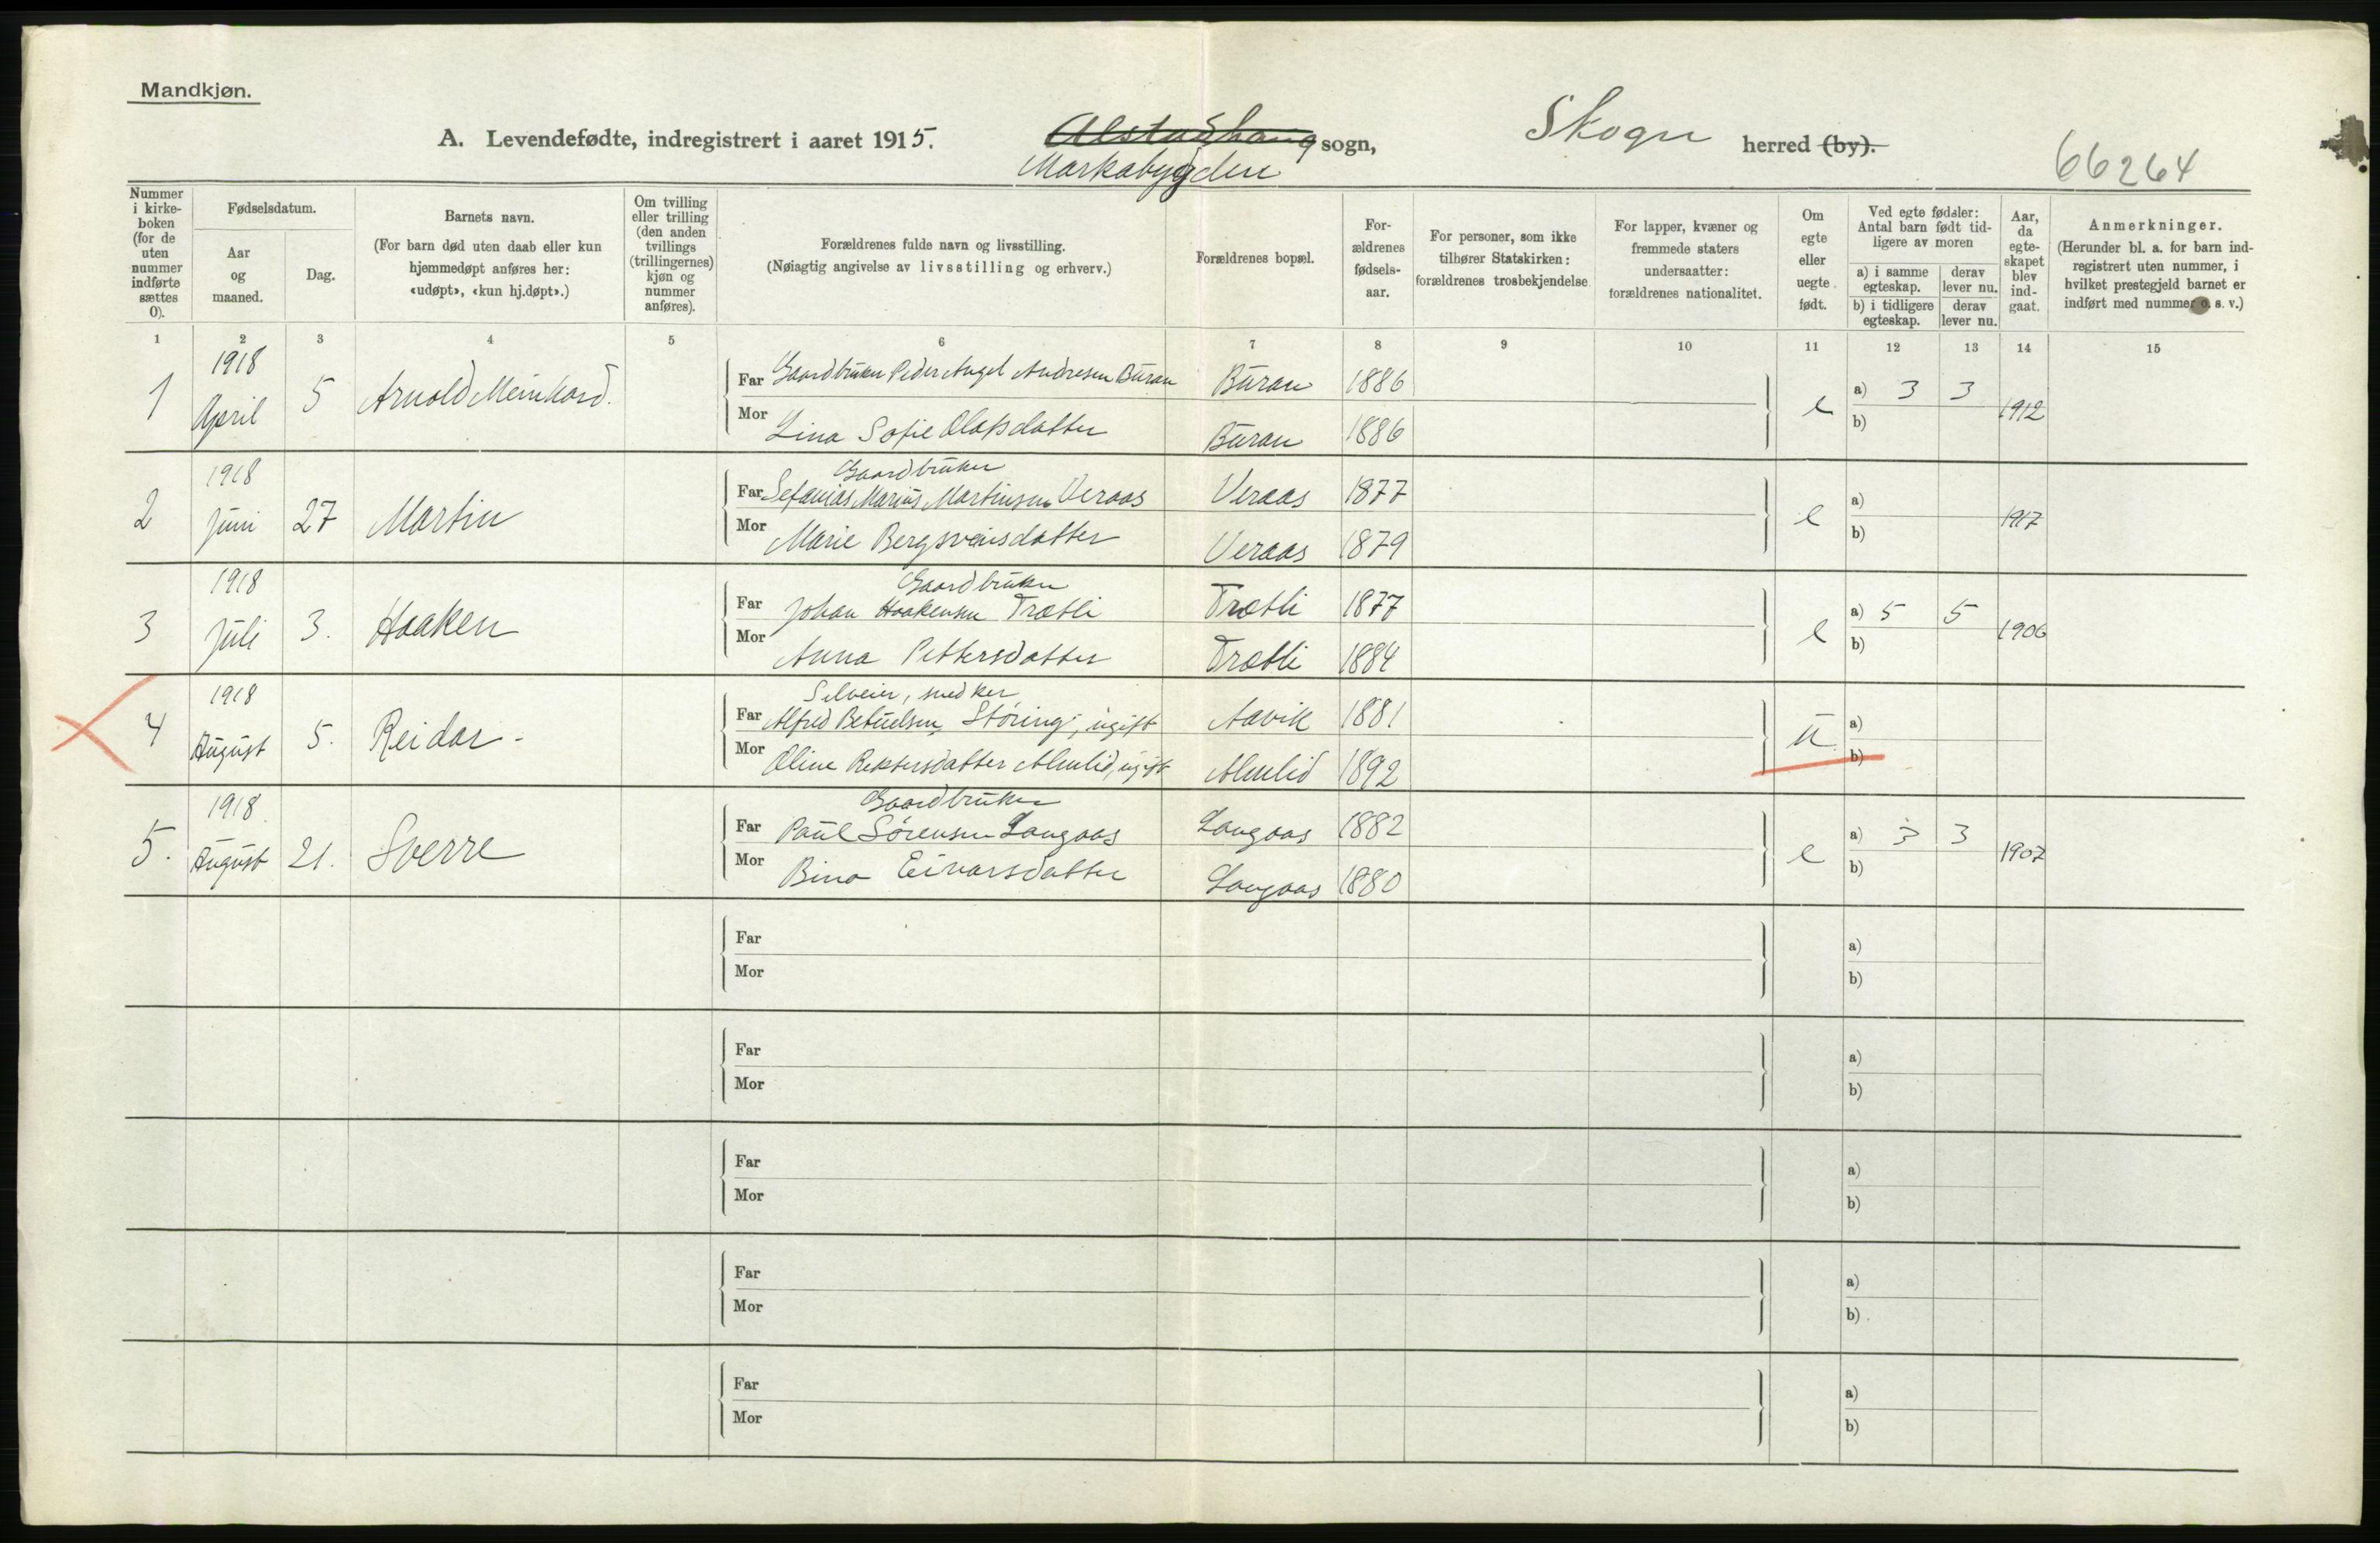 Mandkjøn.
A. Levendefødte, indregistrert i aaret 1915. Alstadhaug sogn, Skogn herred (by).
Markabygden
66264
Nummer i kirkeboken (for de uten nummer indførte sættes 0).
Fødselsdatum.
Aar og maaned.
Dag.
Barnets navn.
(For barn død uten daab eller kun hjemmedøpt anføres her: «udøpt», «kun hj.døpt».)
Om tvilling eller trilling (den anden tvillings (trillingernes) kjøn og nummer anføres).
Forældrenes fulde navn og livsstilling.
(Nøiagtig angivelse av livsstilling og erhverv.)
Forældrenes bopæl.
Forældrenes fødselsaar.
For personer, som ikke tilhører Statskirken: forældrenes trosbekjendelse.
For lapper, kvæner og fremmede staters undersaatter: forældrenes nationalitet.
Om egte eller uegte født.
Ved egte fødsler: Antal barn født tidligere av moren
a) i samme egteskap. derav lever nu.
b) i tidligere egteskap. derav lever nu.
Aar, da egteskapet blev indgaat.
Anmerkninger.
(Herunder bl. a. for barn indregistrert uten nummer, i hvilket prestegjeld barnet er indført med nummer o. s. v.)
1 2 3 4 5 6 7 8 9 10 11 12 13 14 15
1 1918 April 5 Arnold Meinhard.
Far Gaardbruker Peder Angel Andresen Buran Buran 1886
Mor Lina Sofie Olafsdatter Buran 1886
e a) 3 3 b) 1912
2 1918 Juni 27 Martin
Gaardbruker
Far Sefanias Marius Martinsen Veraas Veraas 1877
Mor Marie Bergsveinsdatter Veraas 1879
e a) b) 1917
3 1918 Juli 3. Haaken
Gaardbruker
Far Johan Haakensen Trætli Trætli 1877
Mor Anna Pettersdatter Trætli 1884
e a) 5 5 b) 1906
4 1918 August 5. Reidar
Selveier, snedker
Far Alfred Betuelsen Støring, ugift Aavik 1881
Mor Oline Almlid, ugift Almlid 1892
u. a) b)
5. 1918 August 21. Sverre
Gaardbruker
Far Paul Sørensen Langaas Langaas 1882
Mor Bina Eivarsdatter Langaas 1880
e a) 3 3 b) 1907
Far a)
Mor b)
Far a)
Mor b)
Far a)
Mor b)
Far a)
Mor b)
Far a)
Mor b)